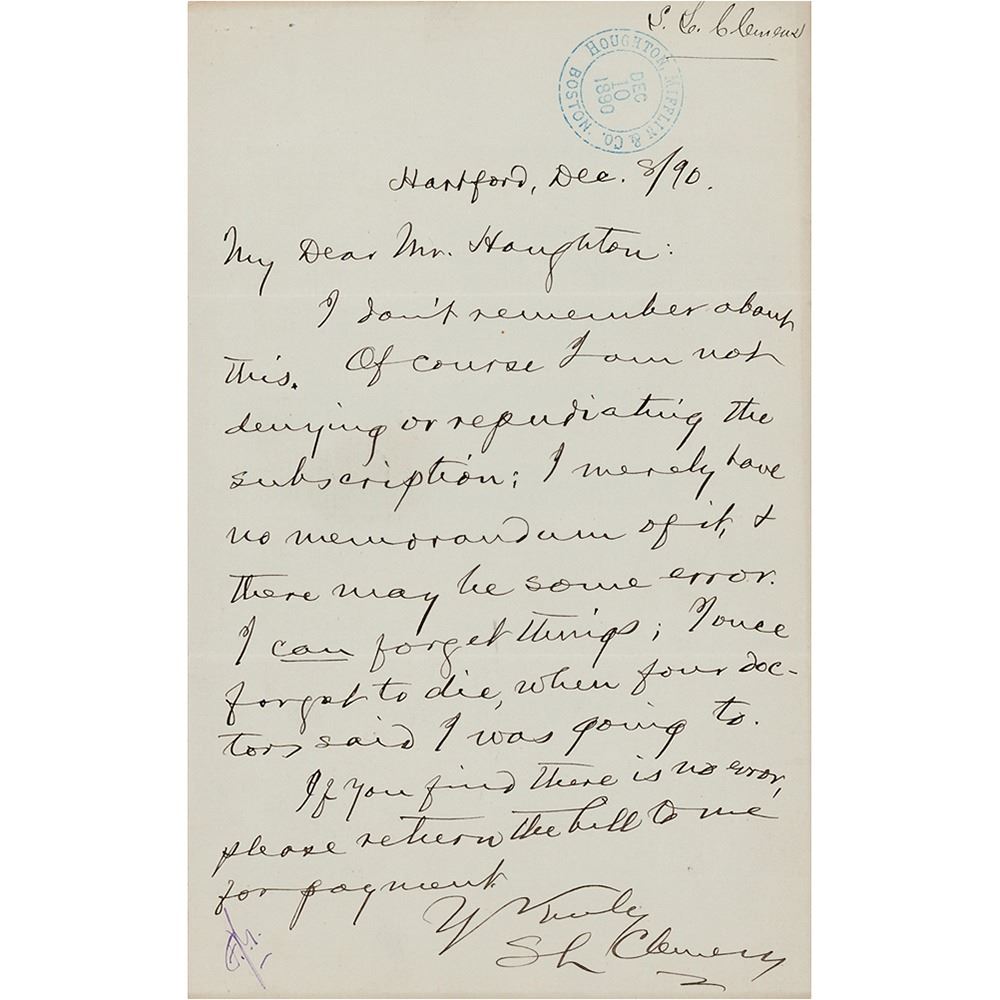 S. L. Clemens
HOUGHTON, MIFFLIN & CO. BOSTON.
DEC
10
1890
Hartford, Dec. 8/90.
My Dear Mr. Houghton:
I don't remember about
this. Of course I am not
denying or repudiating the
subscription; I merely have
no memorandum of it, &
there may be some error.
I can forget things; I once
forgot to die, when four doc-
tors said I was going to.
If you find there is no error,
please return the bill to me
for payment.
Y Truly
SL Clemens